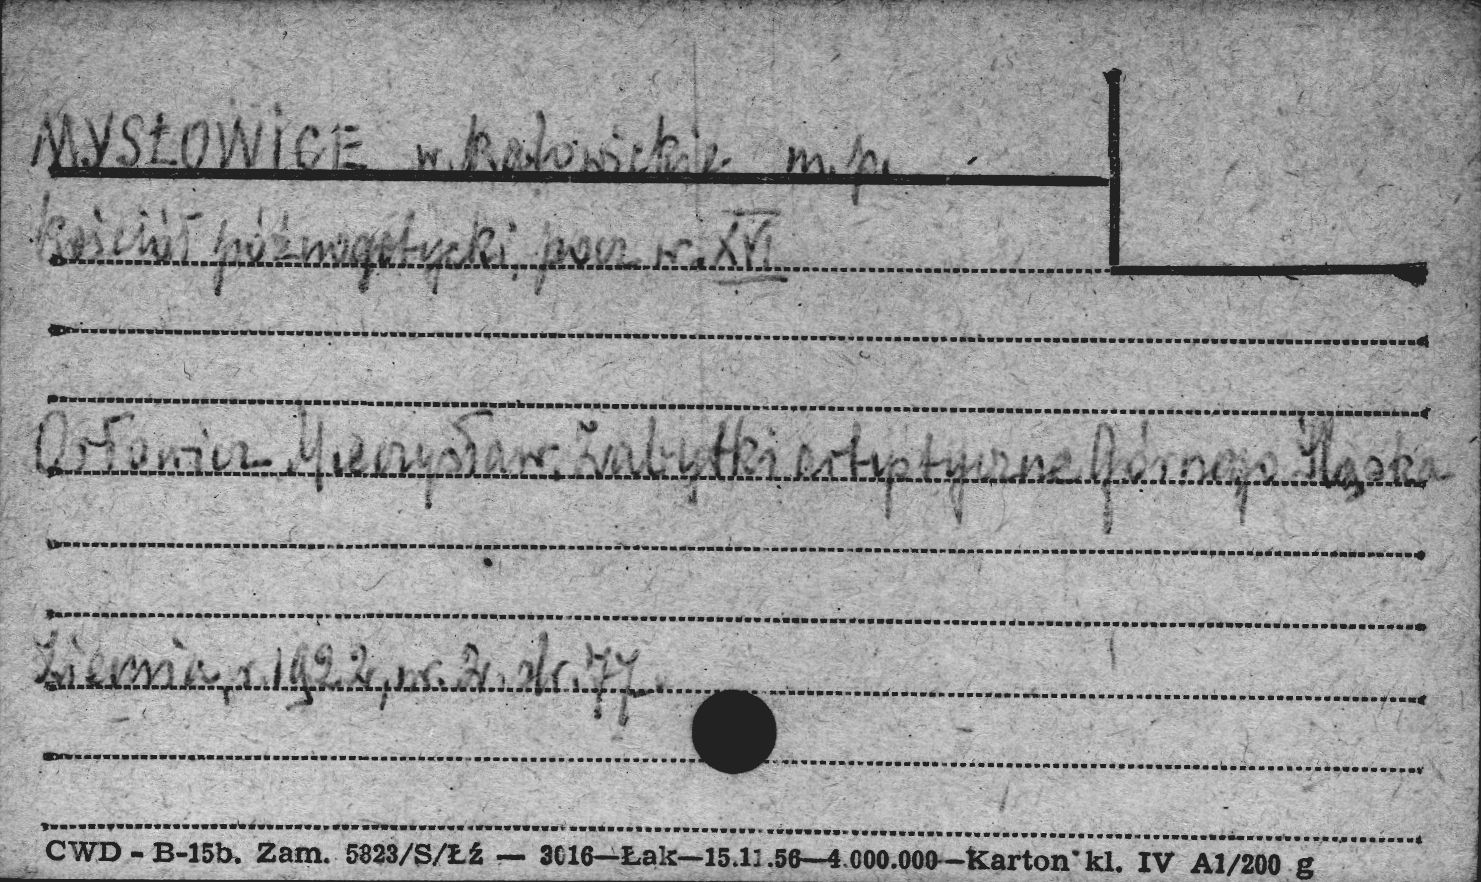 MYSŁOWICE w. katowickie m. p.
kościół póżnogotycki, pocz w. XVI
Orłowicz Mieczysław. Zabytki artystyczne Górnego Śląska
Ziemia, r. 1922, nr. 3. str. 77.
CWD - B-15b. Zam. 5823/S/Łź — 3016—Łak—15.11.56—4.000.000—Karton kl. IV A1/200 g